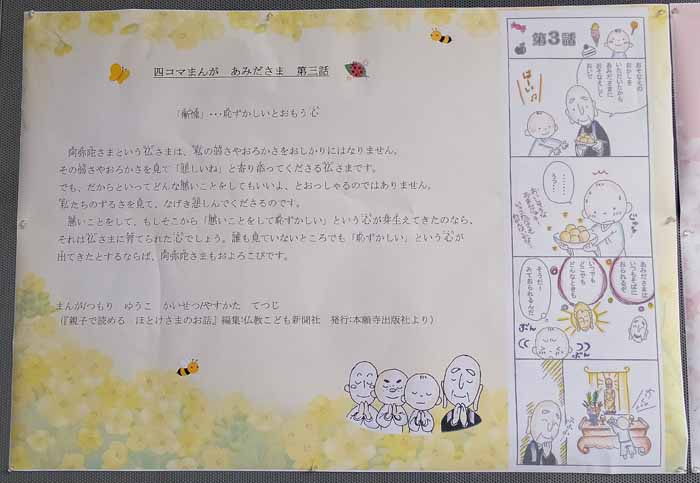 四コマまんが　あみださま　第三話
「慚愧」・・・恥ずかしいとおもう心
阿弥陀さまという仏さまは、私の弱さやおろかさをおしかりにはなりません。
その弱さやおろかさを見て「悲しいね」と寄り添ってくださる仏さまです。
でも、だからといってどんな悪いことをしてもいいよ、とおっしゃるのではありません。
私たちのずるさを見て、なげき悲しんでくださるのです。
悪いことをして、もしそこから「悪いことをして恥ずかしい」という心が芽生えてきたのなら、
それは仏さまに育てられた心でしょう。誰も見ていないところでも「恥ずかしい」という心が
出てきたとするならば、阿弥陀さまもおよろこびです。
まんが/つもり　ゆうこ　かいせつ/やすかた　てつじ
（『親子で読める　ほとけさまのお話』編集:仏教こども新聞社　発行:本願寺出版社より）
第３話
おそなえの
おかしを
いただいたから
あみださまに
おそなえして
おいで
はーい♪
あみださまは
いつもそばに
おられるぞ
いつでも
どこでも
どんなときも
そうだ！
みておられるんだ
ぶん
ぶん